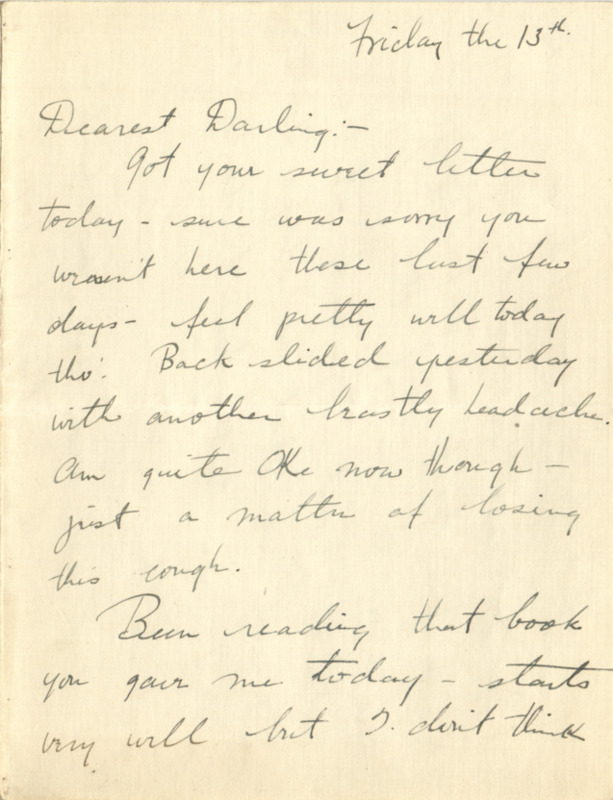 Friday the 13th.
Dearest Darling:-
Got your sweet letter
today - sure was sorry you
weren't here these last few
days - feel pretty well today
tho'. Back slided yesterday
with another beastly headache.
Am quite OKe now though -
just a matter of losing
this cough.
Been reading that book
you gave me today - starts
very well but I don't think